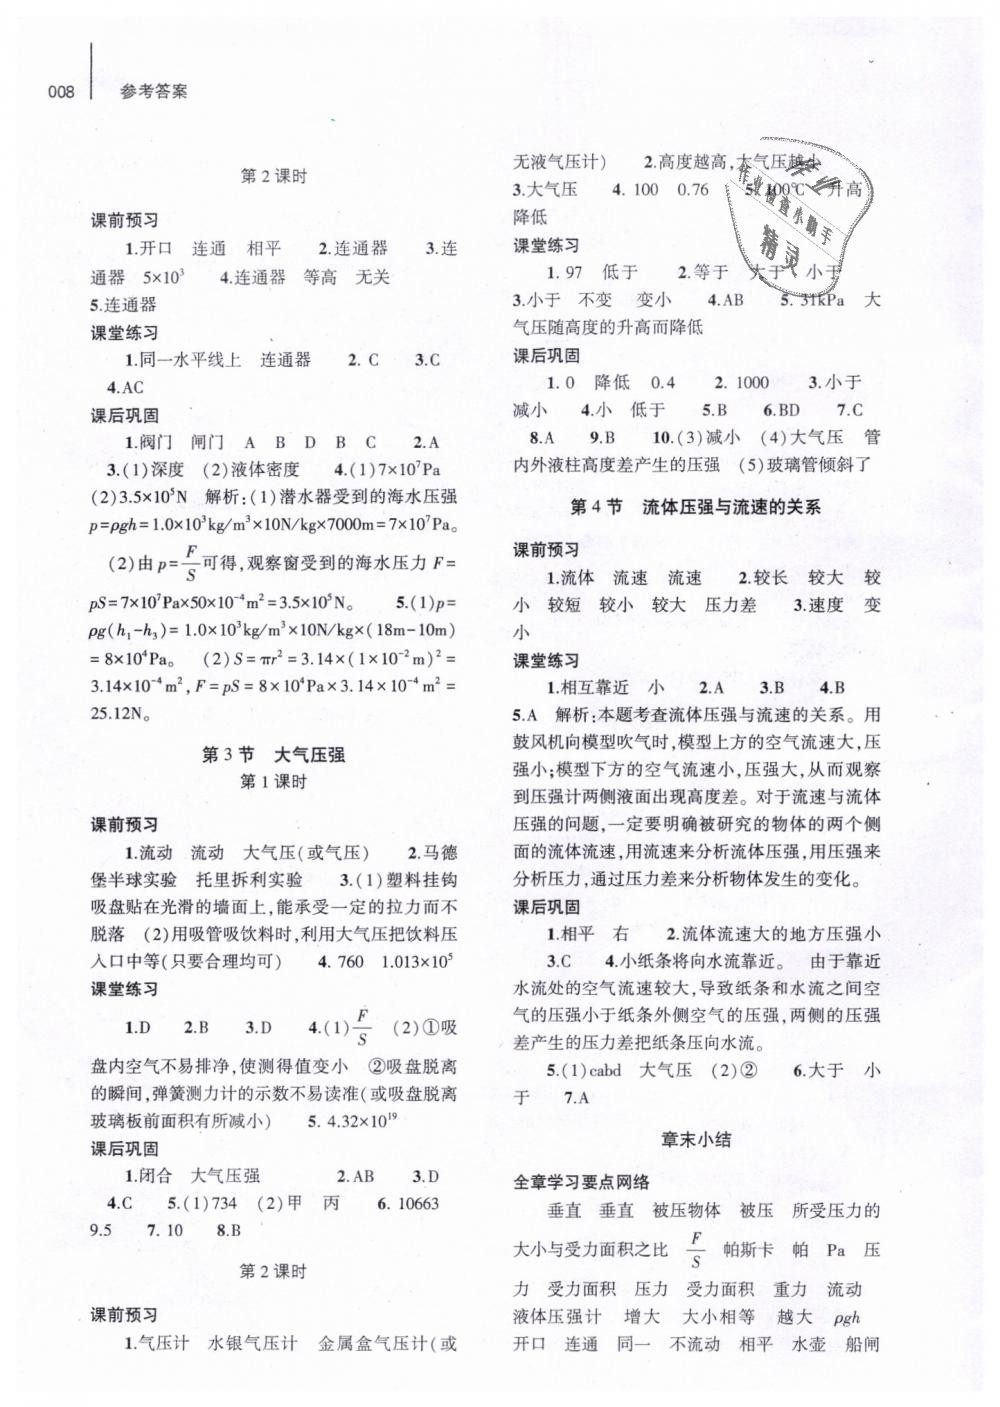 008 参考答案
第2课时
课前预习
1.开口 连通 相平 2.连通器 3.连
通器 5×10³ 4.连通器 等高 无关
5.连通器
课堂练习
1.同一水平线上 连通器 2. C 3.C
4.AC
课后巩固
1.阀门 闸门 A B D B C 2.A
3.(1)深度 (2)液体密度 4.(1)7×10⁷Pa
(2)3.5×10⁵N 解析:(1)潜水器受到的海水压强
p=ρgh=1.0×10³kg/m³×10N/kg×7000m=7×10⁷Pa。
(2)由p=F/S可得,观察窗受到的海水压力F=
pS=7×10⁷Pa×50×10⁻⁴m²=3.5×10⁵N。 5.(1)p=
ρg(h₁-h₃)=1.0×10³kg/m³×10N/kg×(18m-10m)
=8×10⁴Pa。 (2)S=πr²=3.14×(1×10⁻²m)²=
3.14×10⁻⁴m²,F=pS=8×10⁴Pa×3.14×10⁻⁴m²=
25.12N。
第3节 大气压强
第1课时
课前预习
1.流动 流动 大气压(或气压) 2.马德
堡半球实验 托里拆利实验 3.(1)塑料挂钩
吸盘贴在光滑的墙面上,能承受一定的拉力而不
脱落 (2)用吸管吸饮料时,利用大气压把饮料压
入口中等(只要合理均可) 4. 760 1.013×10⁵
课堂练习
1.D 2.B 3.D 4.(1)F/S (2)①吸
盘内空气不易排净,使测得值变小 ②吸盘脱离
的瞬间,弹簧测力计的示数不易读准(或吸盘脱离
玻璃板前面积有所减小) 5. 4.32×10¹⁹
课后巩固
1.闭合 大气压强 2.AB 3.D
4.C 5.(1)734 (2)甲 丙 6. 10663
9.5 7. 10 8.B
第2课时
课前预习
1.气压计 水银气压计 金属盒气压计(或
无液气压计) 2.高度越高,大气压越小
3.大气压 4. 100 0.76 5. 100℃ 升高
降低
课堂练习
1. 97 低于 2.等于 大于 小于
3.小于 不变 变小 4.AB 5. 31kPa 大
气压随高度的升高而降低
课后巩固
1. 0 降低 0.4 2. 1000 3.小于
减小 4.小 低于 5.B 6.BD 7.C
8.A 9.B 10.(3)减小 (4)大气压 管
内外液柱高度差产生的压强 (5)玻璃管倾斜了
第4节 流体压强与流速的关系
课前预习
1.流体 流速 流速 2.较长 较大 较
小 较短 较小 较大 压力差 3.速度 变
小
课堂练习
1.相互靠近 小 2.A 3.B 4.B
5.A 解析:本题考查流体压强与流速的关系。用
鼓风机向模型吹气时,模型上方的空气流速大,压
强小;模型下方的空气流速小,压强大,从而观察
到压强计两侧液面出现高度差。对于流速与流体
压强的问题,一定要明确被研究的物体的两个侧
面的流体流速,用流速来分析流体压强,用压强来
分析压力,通过压力差来分析物体发生的变化。
课后巩固
1.相平 右 2.流体流速大的地方压强小
3.C 4.小纸条将向水流靠近。 由于靠近
水流处的空气流速较大,导致纸条和水流之间空
气的压强小于纸条外侧空气的压强,两侧的压强
差产生的压力差把纸条压向水流。
5.(1)cabd 大气压 (2)② 6.大于 小
于 7.A
章末小结
全章学习要点网络
垂直 垂直 被压物体 被压 所受压力的
大小与受力面积之比 F/S 帕斯卡 帕 Pa 压
力 受力面积 压力 受力面积 重力 流动
液体压强计 增大 大小相等 越大 ρgh
开口 连通 同一 不流动 相平 水壶 船闸
作业
作业检查小助手
精灵